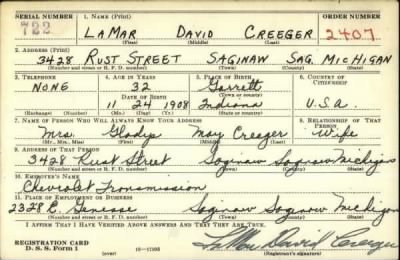 SERIAL NUMBER 1. NAME (Print) ORDER NUMBER
722 LaMar David Creeger 2407
(First) (Middle) (Last)
2. ADDRESS (Print)
3428 Rust Street Saginaw Sag. Michigan
(Number and street or R. F. D. number) (Town) (County) (State)
3. TELEPHONE 4. AGE IN YEARS 5. PLACE OF BIRTH 6. COUNTRY OF CITIZENSHIP
None 32 Garrett
(Town or county)
DATE OF BIRTH
11 24 1908 Indiana U.S.A.
(Exchange) (Number) (Mo.) (Day) (Yr.) (State or country)
7. NAME OF PERSON WHO WILL ALWAYS KNOW YOUR ADDRESS 8. RELATIONSHIP OF THAT PERSON
Mrs. Gladys May Creeger Wife
(Mr., Mrs., Miss) (First) (Middle) (Last)
9. ADDRESS OF THAT PERSON
3428 Rust Street Saginaw Saginaw Michigan
(Number and street or R. F. D. number) (Town) (County) (State)
10. EMPLOYER'S NAME
Chevrolet Transmission
11. PLACE OF EMPLOYMENT OR BUSINESS
2328 E. Genesse Saginaw Saginaw Michigan
(Number and street or R. F. D. number) (Town) (County) (State)
I AFFIRM THAT I HAVE VERIFIED ABOVE ANSWERS AND THAT THEY ARE TRUE.
REGISTRATION CARD
D. S. S. Form 1 (over) 16—17105 LaMar David Creeger
(Registrant's signature)